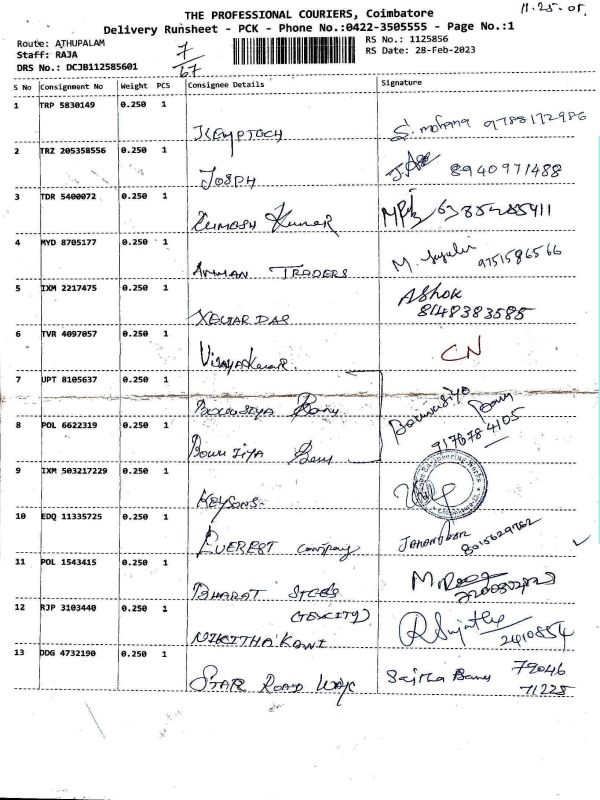 11.25.05.
THE PROFESSIONAL COURIERS, Coimbatore
Delivery Runsheet - PCK - Phone No.:0422-3505555 - Page No.:1
Route: ATHUPALAM 7 RS No.: 1125856
Staff: RAJA 67 RS Date: 28-Feb-2023
DRS No.: DCJB112585601
S No Consignment No Weight PCS Consignee Details Signature
1 TRP 5830149 0.250 1
S. mohana 9788172986
2 TRZ 205358556 0.250 1
JOSPH 8940971488
3 TDR 5400072 0.250 1
Kumar
4 MYD 8705177 0.250 1
AMMAN TRADERS M. 9751586566
5 IXM 2217475 0.250 1
Ashok
8148383585
6 TVR 4097057 0.250 1
Vijayakumar. CN
7 UPT 8105637 0.250 1
Bowsiya Banu
8 POL 6622319 0.250 1
Bowsiya Banu 917678 4105
9 IXM 503217229 0.250 1
KEYSONS.
Engineering Works
10 EDQ 11335725 0.250 1
EVEREST company 8015629762
11 POL 1543415 0.250 1
BHARAT STEELS
12 RJP 3103440 0.250 1
NIKITHA R Sujatha 2410854
13 DDG 4732190 0.250 1
STAR ROAD WAYS Sajitha Banu 79046
71225